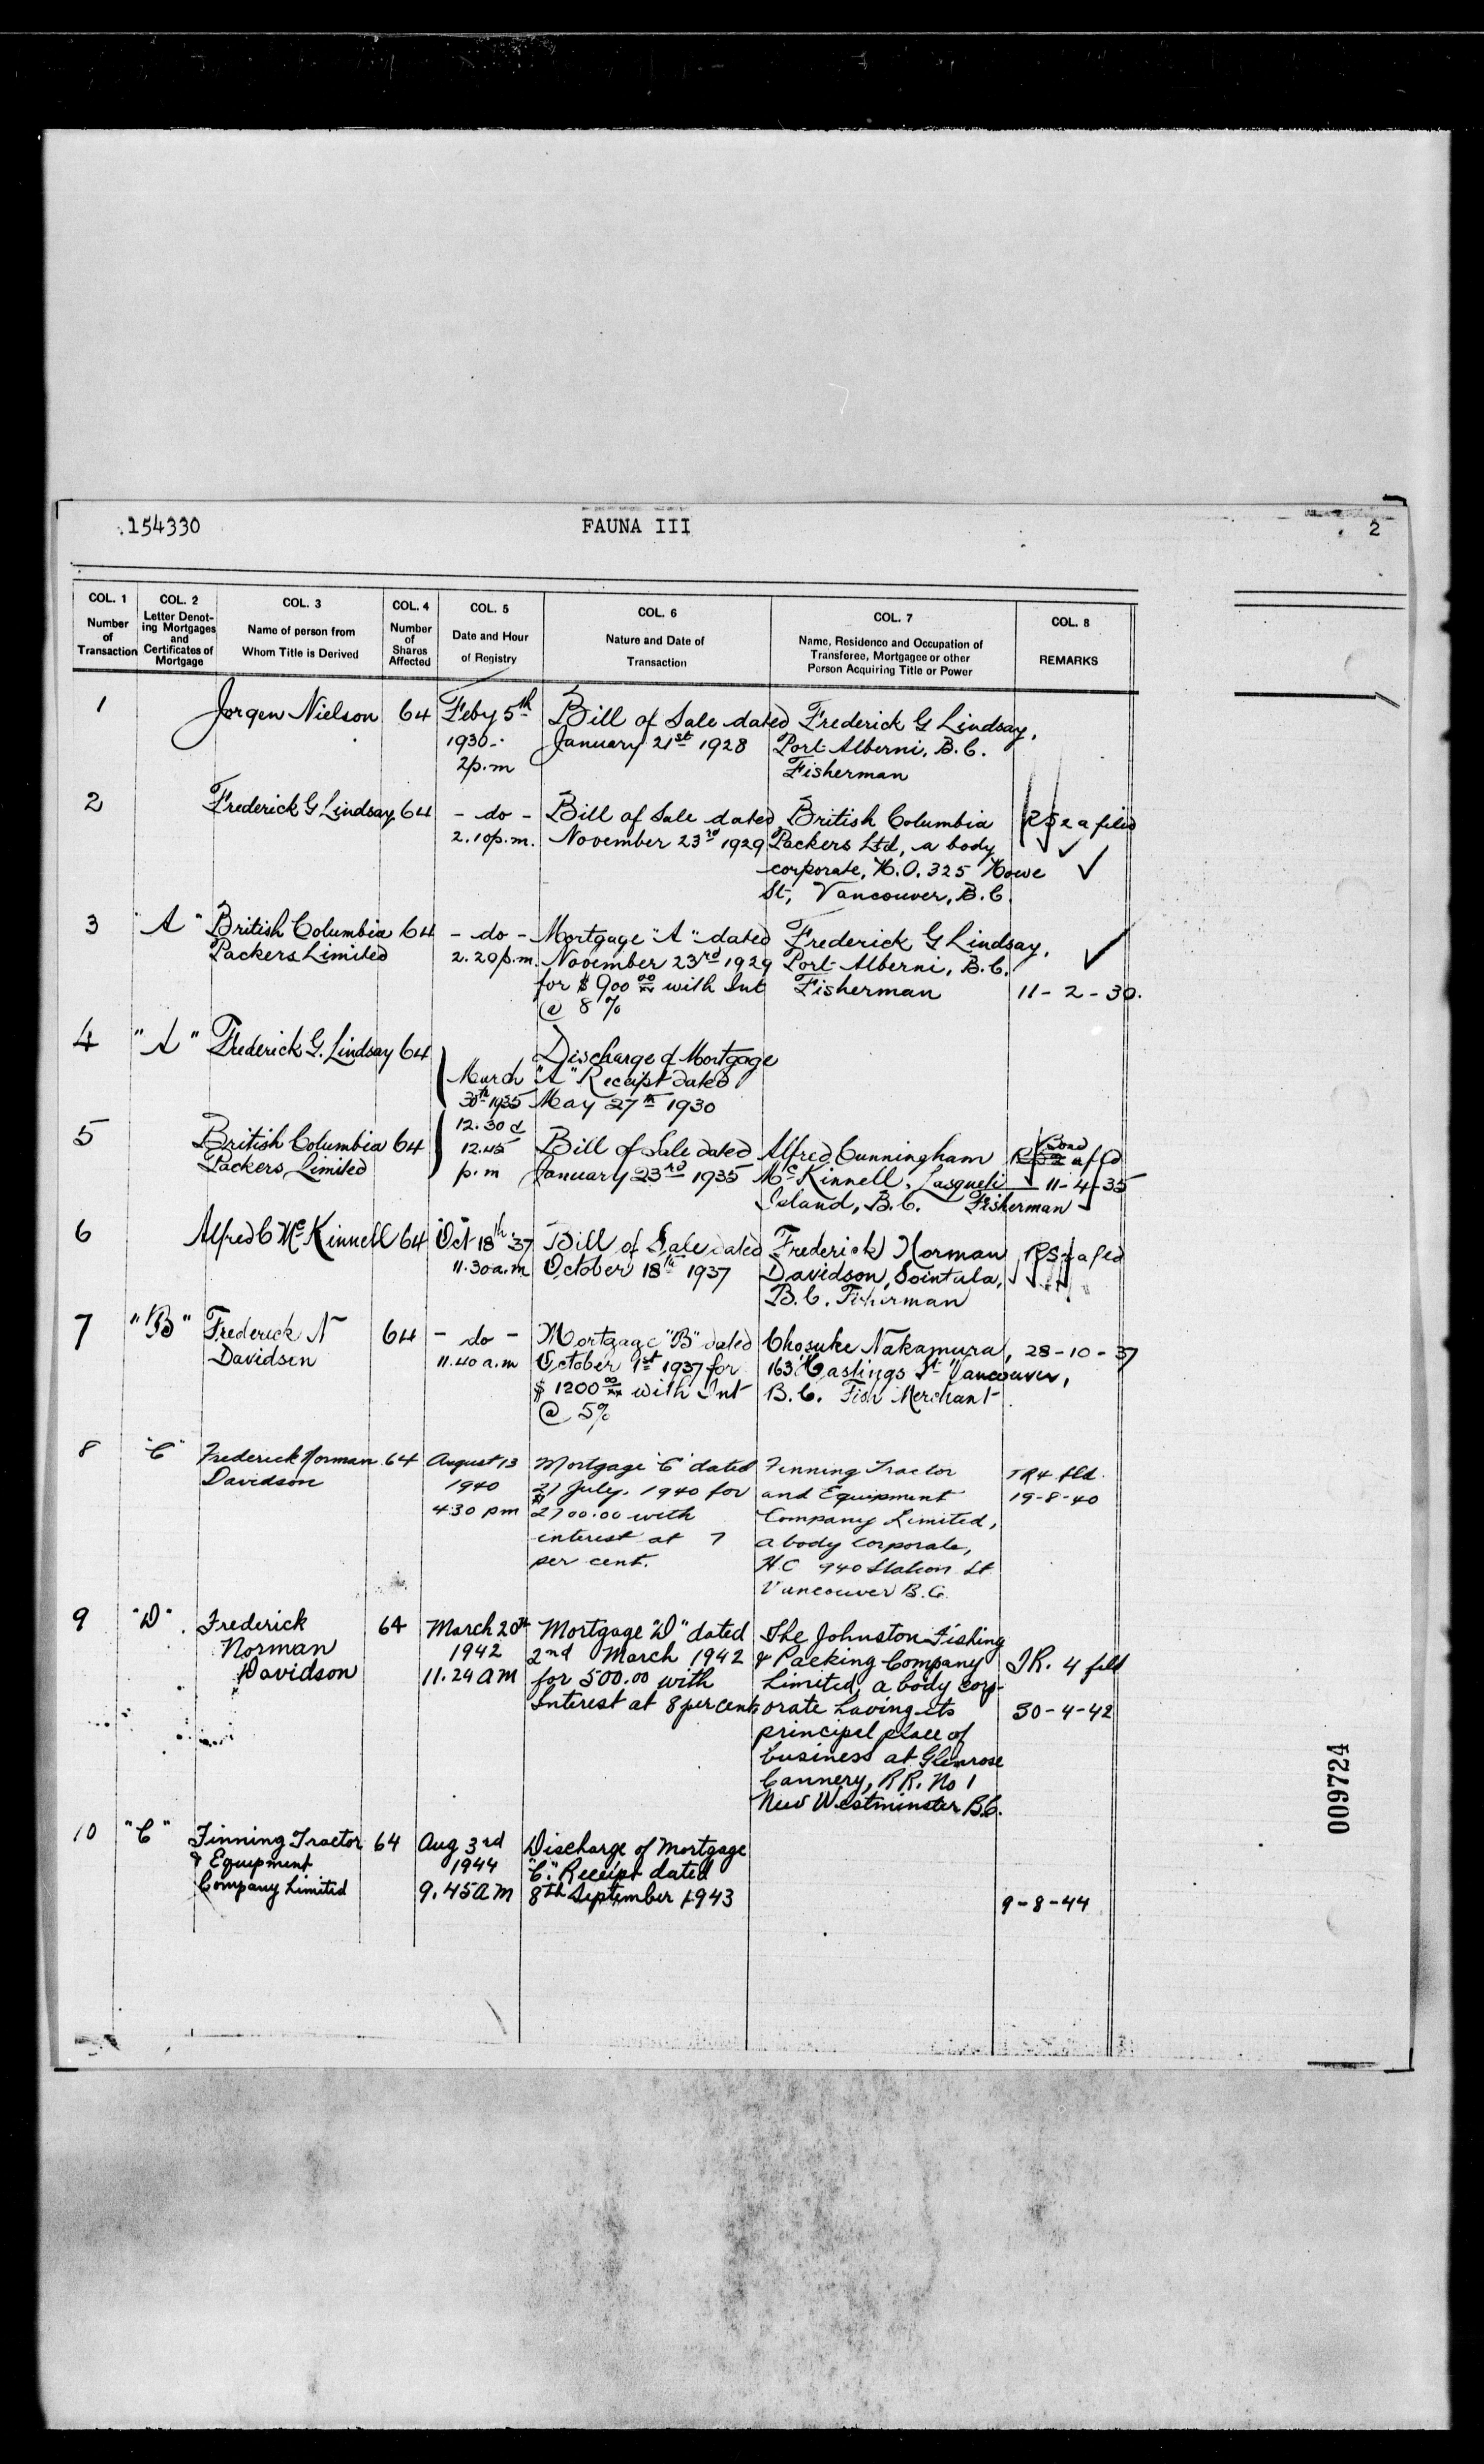 154330 FAUNA III 2
COL. 1 COL. 2 COL. 3 COL. 4 COL. 5 COL. 6 COL. 7 COL. 8
Number of Transaction
Letter Denoting Mortgages and Certificates of Mortgage
Name of person from Whom Title is Derived
Number of Shares Affected
Date and Hour of Registry
Nature and Date of Transaction
Name, Residence and Occupation of Transferee, Mortgagee or other Person Acquiring Title or Power
REMARKS
1 Jorgen Nielson 64 Feby 5th Bill of Sale dated Frederick G Lindsay,
1930 January 21st 1928 Port Alberni, B.C.
2p.m Fisherman
2 Frederick G Lindsay 64 - do - Bill of Sale dated British Columbia RS2a filed
2.10p.m. November 23rd 1929 Packers Ltd, a body
corporate, H.O. 325 Howe
St, Vancouver, B.C.
3 "A" British Columbia 64 - do - Mortgage "A" dated Frederick G Lindsay,
Packers Limited 2.20p.m. November 23rd 1929 Port Alberni, B.C.
for $900 00/xx with Int Fisherman 11-2-30.
@ 8%
4 "A" Frederick G. Lindsay 64 Discharge of Mortgage
March "A" Receipt dated
30th 1935 May 27th 1930
12.30 &
5 British Columbia 64 12.45 Bill of Sale dated Alfred Cunningham Bond
Packers Limited p.m January 23rd 1935 McKinnell, Lasqueti 11-4-35
Island, B.C. Fisherman
6 Alfred C McKinnell 64 Oct 18th '37 Bill of Sale dated Frederick Norman RS2a fled
11.30a.m October 18th 1937 Davidson, Sointula,
B.C. Fisherman
7 "B" Frederick N 64 - do - Mortgage "B" dated Chosuke Nakamura, 28-10-37
Davidson 11.40 a.m October 1st 1937 for 163 Hastings St Vancouver,
$1200 00/xx with Int B.C. Fish Merchant
@ 5%
8 "C" Frederick Norman 64 August 13 Mortgage "C" dated Finning Tractor TR4 fld.
Davidson 1940 21 July, 1940 for and Equipment 19-8-40
4.30 pm $2700.00 with Company Limited,
interest at 7 a body corporate,
per cent. 940 Station St
Vancouver B.C.
9 "D" Frederick 64 March 20th Mortgage "D" dated The Johnston Fishing
Norman 1942 2nd March 1942 & Packing Company TR. 4 filed
Davidson 11.24AM for 500.00 with Limited, a body corp-
Interest at 8 per cent orate having its 30-4-42
principal place of
business at Glenrose
Cannery, R.R. No 1
New Westminster B.C.
10 "C" Finning Tractor 64 Aug 3rd Discharge of Mortgage
& Equipment 1944 "C". Receipt dated
Company Limited 9.45AM 8th September 1943 9-8-44
009724